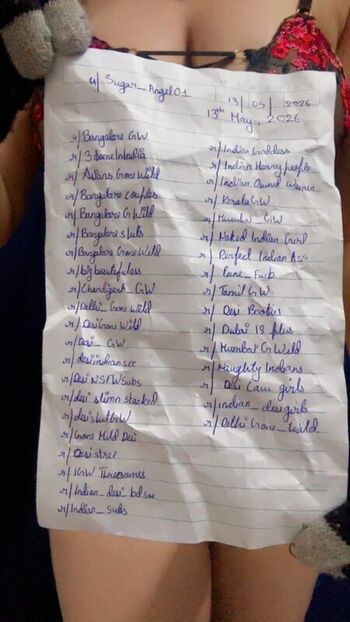 u/Sugar_Angel01
13/05/2026
13th May, 2026
r/Bangalore GW
r/3 some In India
r/Asians Gone Wild
r/Bangalore Couples
r/Bangalore G Wild
r/Bangalore sluts
r/Bangalore Gone Wild
r/big beautiful ass
r/Chandigarh_GW
r/Delhi_Gone Wild
r/Desi Gone Wild
r/Desi_GW
r/desi indian sex
r/Desi NSFW Subs
r/desi slimn stacked
r/desi slut GW
r/Gone Mild Desi
r/Desi stree
r/IGW Threesomes
r/Indian_desi bdsm
r/Indian_subs
r/Indian Goddess
r/Indian Heavy people
r/Indian Women
r/Kerala GW
r/Mumbai_GW
r/Naked Indian Girl
r/Perfect Indian Ass
r/Pune_Fwb
r/Tamil GW
r/Desi Boobies
r/Dubai 18 Plus
r/Mumbai G Wild
r/Naughty Indians
r/Desi Cam girls
r/indian_desi girls
r/Delhi Gone_Wild